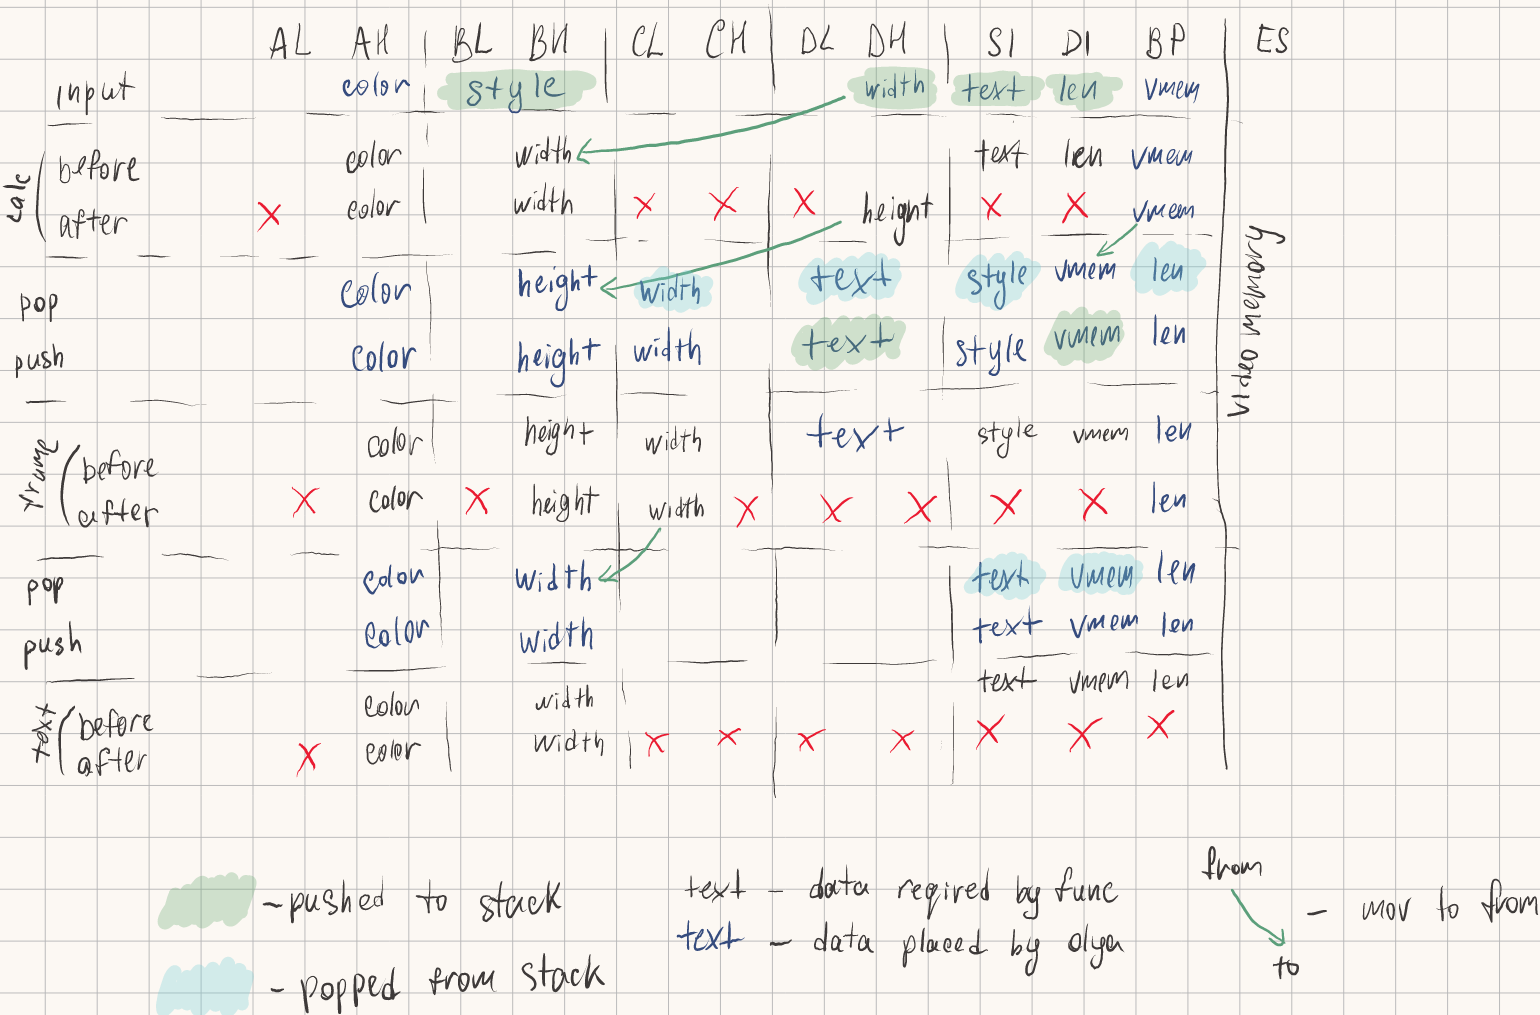 AL AH BL BH CL CH DL DH SI DI BP ES
input color style width text len vmem
calc
before color width text len vmem
after X color width X X X height X X vmem
pop color height width text style vmem len
push color height width text style vmem len
video memory
frame
before color height width text style vmem len
after X color X height width X X X X X len
pop color width text vmem len
push color width text vmem len
text
before color width text vmem len
after X color width X X X X X X X
- pushed to stack
- popped from stack
text - data reqired by func
text - data placed by olya
from
to
- mov to from